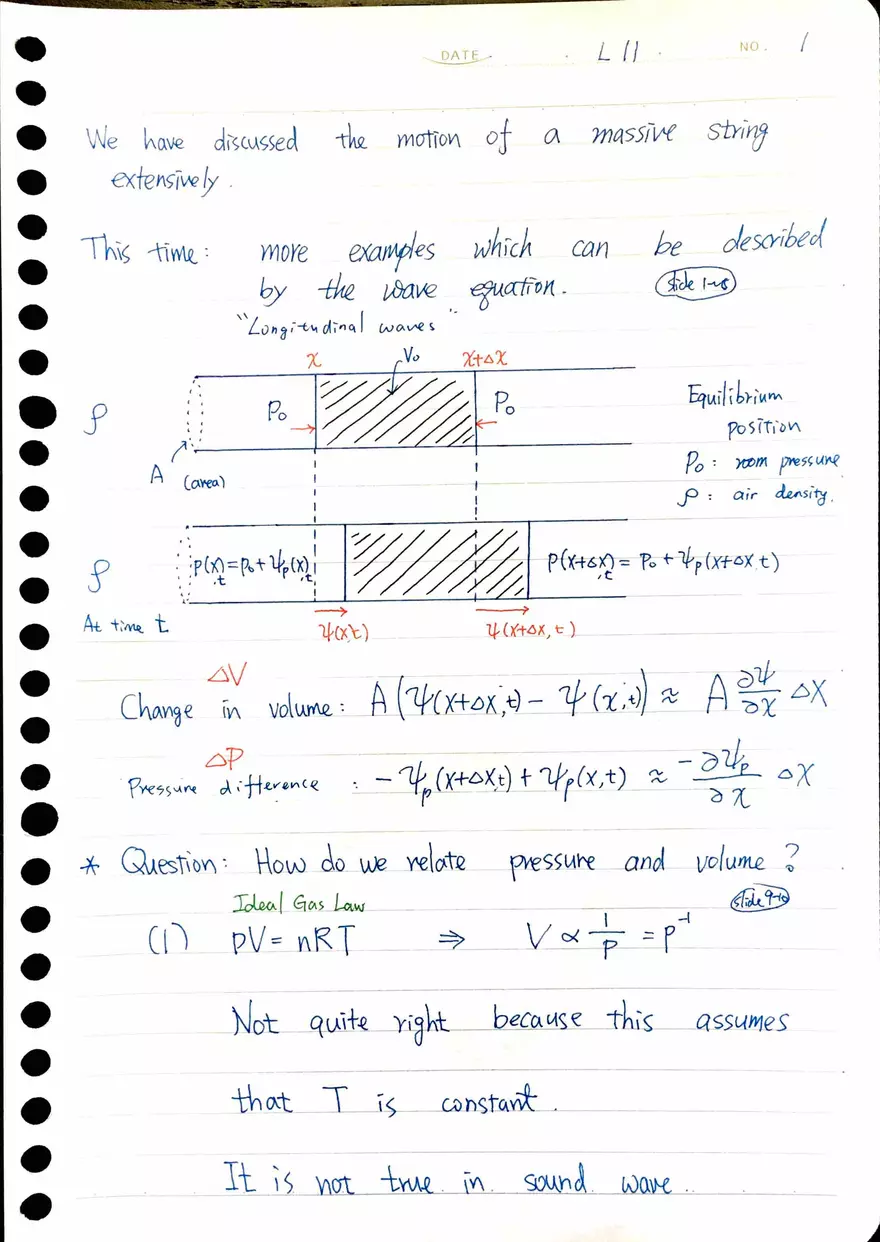 DATE L 11 NO. 1
We have discussed the motion of a massive string
extensively.
This time: more examples which can be described
by the wave equation. slide 1~8
"Longitudinal waves"
x V₀ x+Δx
ρ P₀ P₀ Equilibrium
position
A (area) P₀ : room pressure
ρ : air density.
ρ P(x,t) = P₀ + ψₚ(x,t) P(x+Δx,t) = P₀ + ψₚ(x+Δx,t)
At time t ψ(x,t) ψ(x+Δx, t)
ΔV
Change in volume: A(ψ(x+Δx,t) − ψ(x,t)) ≈ A ∂ψ/∂x Δx
ΔP
Pressure difference : −ψₚ(x+Δx,t) + ψₚ(x,t) ≈ −∂ψₚ/∂x Δx
* Question: How do we relate pressure and volume?
Ideal Gas Law slide 9-10
(1) PV = nRT ⇒ V ∝ 1/P = P⁻¹
Not quite right because this assumes
that T is constant.
It is not true in sound wave.